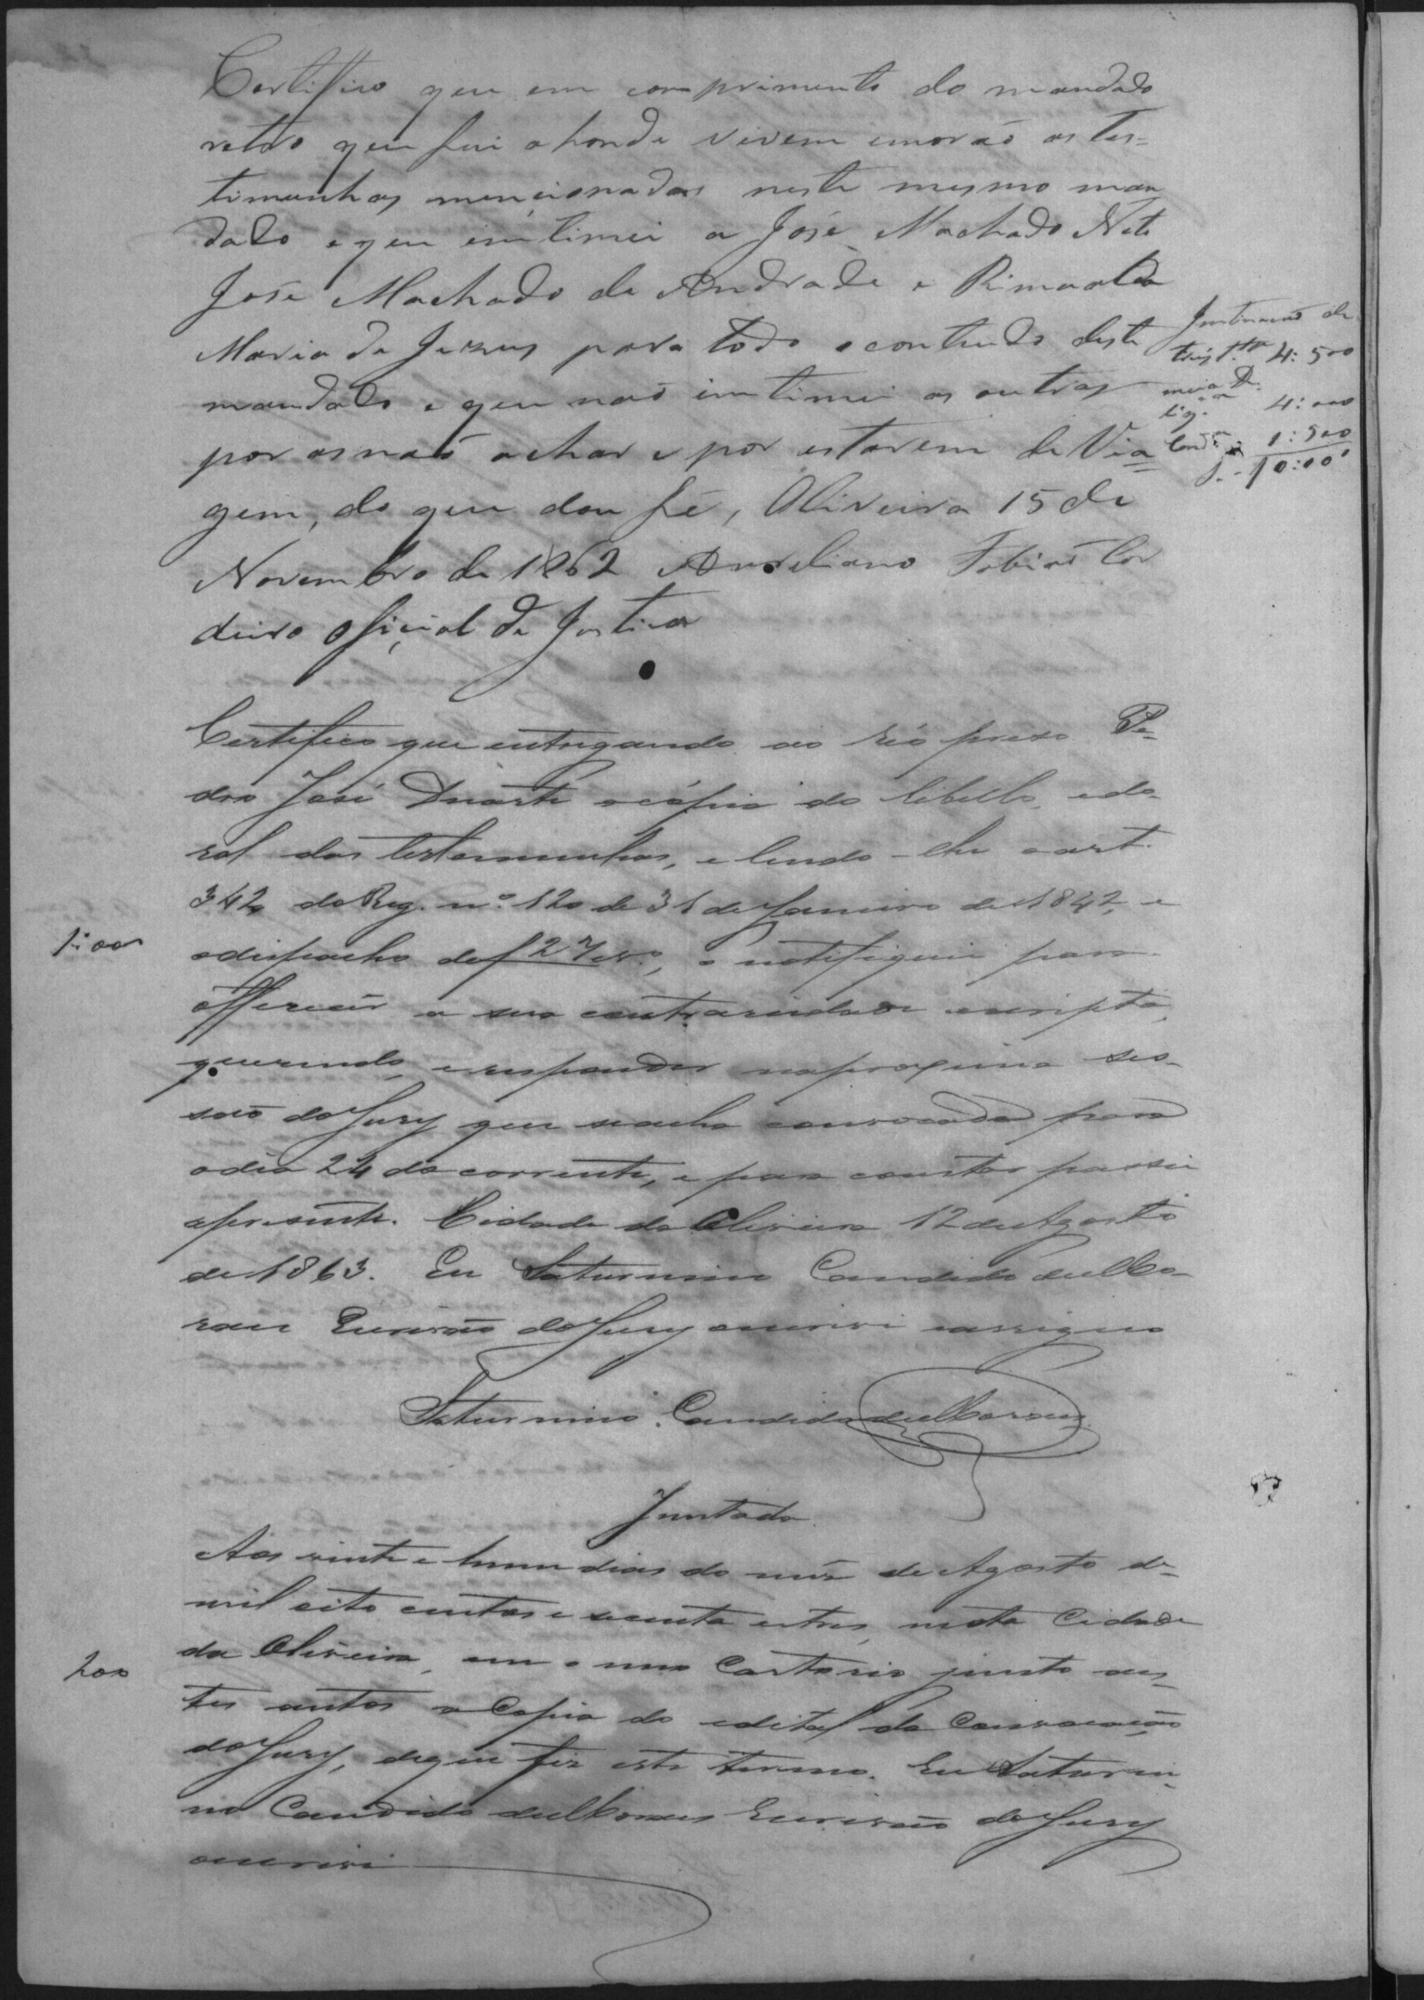 Certifico que em comprimento do mandado
retro que fui ahonde vivem emorão as tes=
timunhas mençionadas neste mesmo man
dado e que imtimei a José Machado Neto
José Machado de Andrade e Rimualda
Maria de Jezus para todo o contiudo deste
mandado e que naõ imtimei as outras
por as naõ achar e por estarem de Via=
gem, do que dou fé, Oliveira 15 de
Novembro de 1862 Aureliano Tobias Cor
deiro ofiçial de Justica
Intimacaõ de
tres 4:500
4:000
1:500
10:000
Certifico que entregando ao réo prezo Pe-
dro José Duarte a cópia do libello, e do
rol das testemunhas, e lendo-lhe o art.
342 do Reg. nº 120 de 31 de Janeiro de 1842, e
1:000
o despacho de f 27 vº, o notifiquei para
offerecer a sua contrariedade escripta,
querendo, e responder na proxima ses-
saõ do Jury que se acha convocada para
o dia 24 do corrente, e para constar passei
a presente. Cidade da Oliveira 12 de Agosto
de 1863. Eu Saturnino Candido de Mo-
raes Escrivão do Jury o escrivi e assigno
Saturnino Candido de Moraes
Juntada
Aos vinte e hum dias do mez de Agosto de
mil oito centos e secenta e tres, nesta Cidade
200
da Oliveira, em o meo Cartorio junto aes-
tes autos a Copia do edital da Convocação
do Jury, de que fiz este termo. Eu Saturni-
no Candido de Moraes Escrivão do Jury
o escrivi